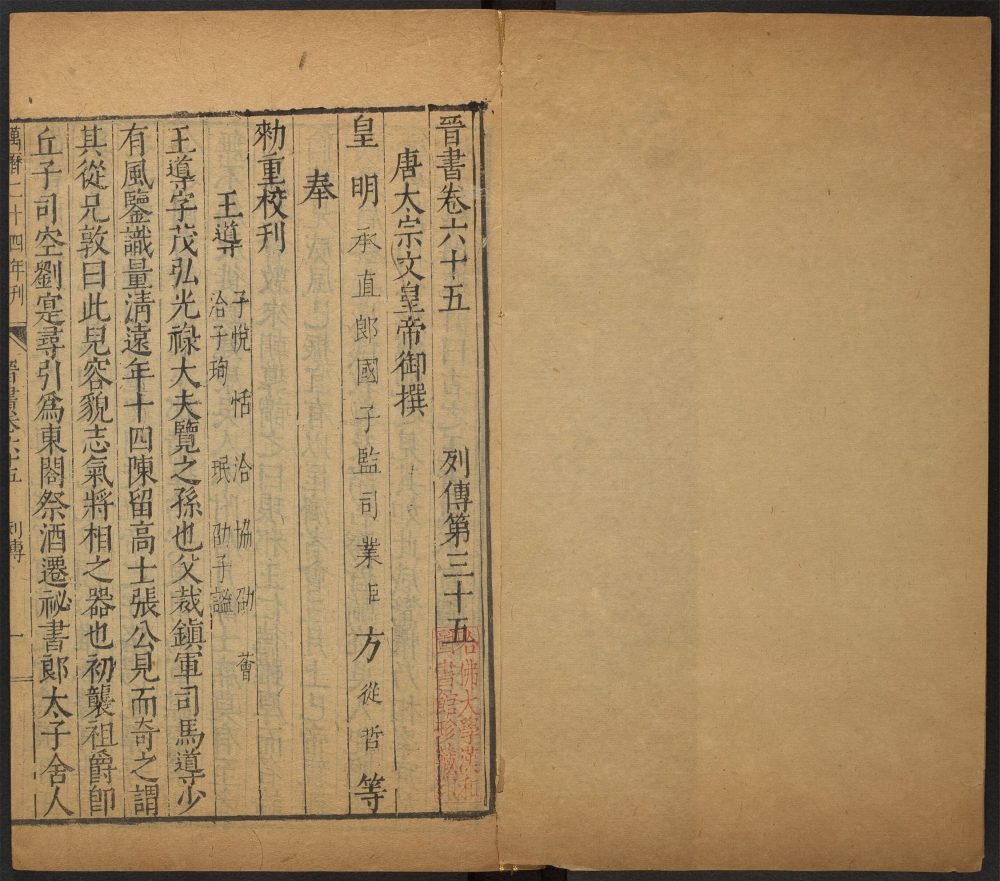 晉書卷六十五 列傳第三十五
唐太宗文皇帝御撰
皇明承直郎國子監司業臣方從哲等
奉
勑重校刊
王導 子悅 恬 洽 協 劭 薈
洽子珣 珉 劭子謐
王導字茂弘光祿大夫覽之孫也父裁鎮軍司馬導少
有風鑒識量淸遠年十四陳留高士張公見而奇之謂
其從兄敦曰此兒容貌志氣將相之器也初襲祖爵卽
丘子司空劉寔尋引爲東閣祭酒遷祕書郎太子舍人
萬曆二十四年刊 晉書卷六十五 列傳 一
哈佛大學漢和
圖書館珍藏印